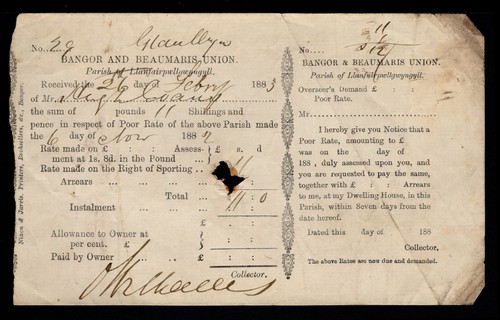 Glanllyn
No. 29
BANGOR AND BEAUMARIS UNION.
Parish of Llanfairpwllgwyngyll.
Received the 26 day of Febry 1883
of Mr. Hugh
the sum of pounds 11 Shillings and
pence in respect of Poor Rate of the above Parish made
the 6 day of Nov 188
Rate made on £ : : Assess-
ment at 1s. 8d. in the Pound
£ s. d
Rate made on the Right of Sporting .. 11
Arrears ... ... ...
Total ... 11 : 0
Instalment ...
£ : :
Allowance to Owner at
per cent. £ : :
Paid by Owner ... £ : :
Collector.
Nixon & Jarvis, Printers, Booksellers, &c., Bangor.
11
No.
BANGOR & BEAUMARIS UNION.
Parish of Llanfairpwllgwyngyll.
Overseer's Demand £ : :
Poor Rate.
Mr.
I hereby give you Notice that a
Poor Rate, amounting to £
was on the day of
188 , duly assessed upon you, and
you are requested to pay the same,
together with £ : : Arrears
to me, at my Dwelling House, in this
Parish, within Seven days from the
date hereof.
Dated this day of 188
Collector.
The above Rates are now due and demanded.